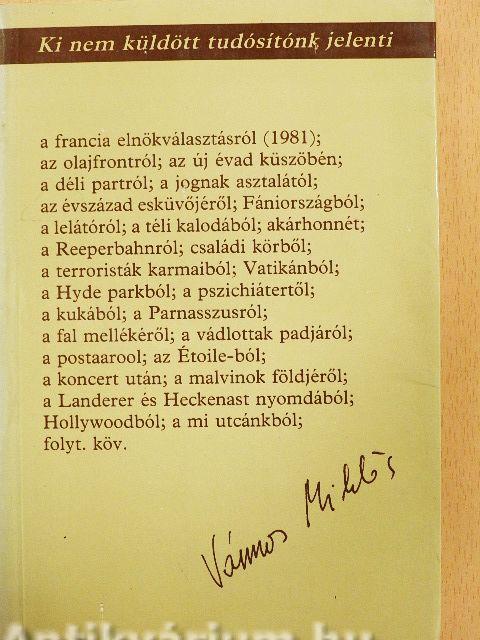 Ki nem küldött tudósítónk jelenti
a francia elnökválasztásról (1981);
az olajfrontról; az új évad küszöbén;
a déli partról; a jognak asztalától;
az évszázad esküvőjéről; Fániországból;
a lelátóról; a téli kalodából; akárhonnét;
a Reeperbahnról; családi körből;
a terroristák karmaiból; Vatikánból;
a Hyde parkból; a pszichiátertől;
a kukából; a Parnasszusról;
a fal mellékéről; a vádlottak padjáról;
a postaarool; az Étoile-ból;
a koncert után; a malvinok földjéről;
a Landerer és Heckenast nyomdából;
Hollywoodból; a mi utcánkból;
folyt. köv.
Vámos Miklós
Antikvárium.hu